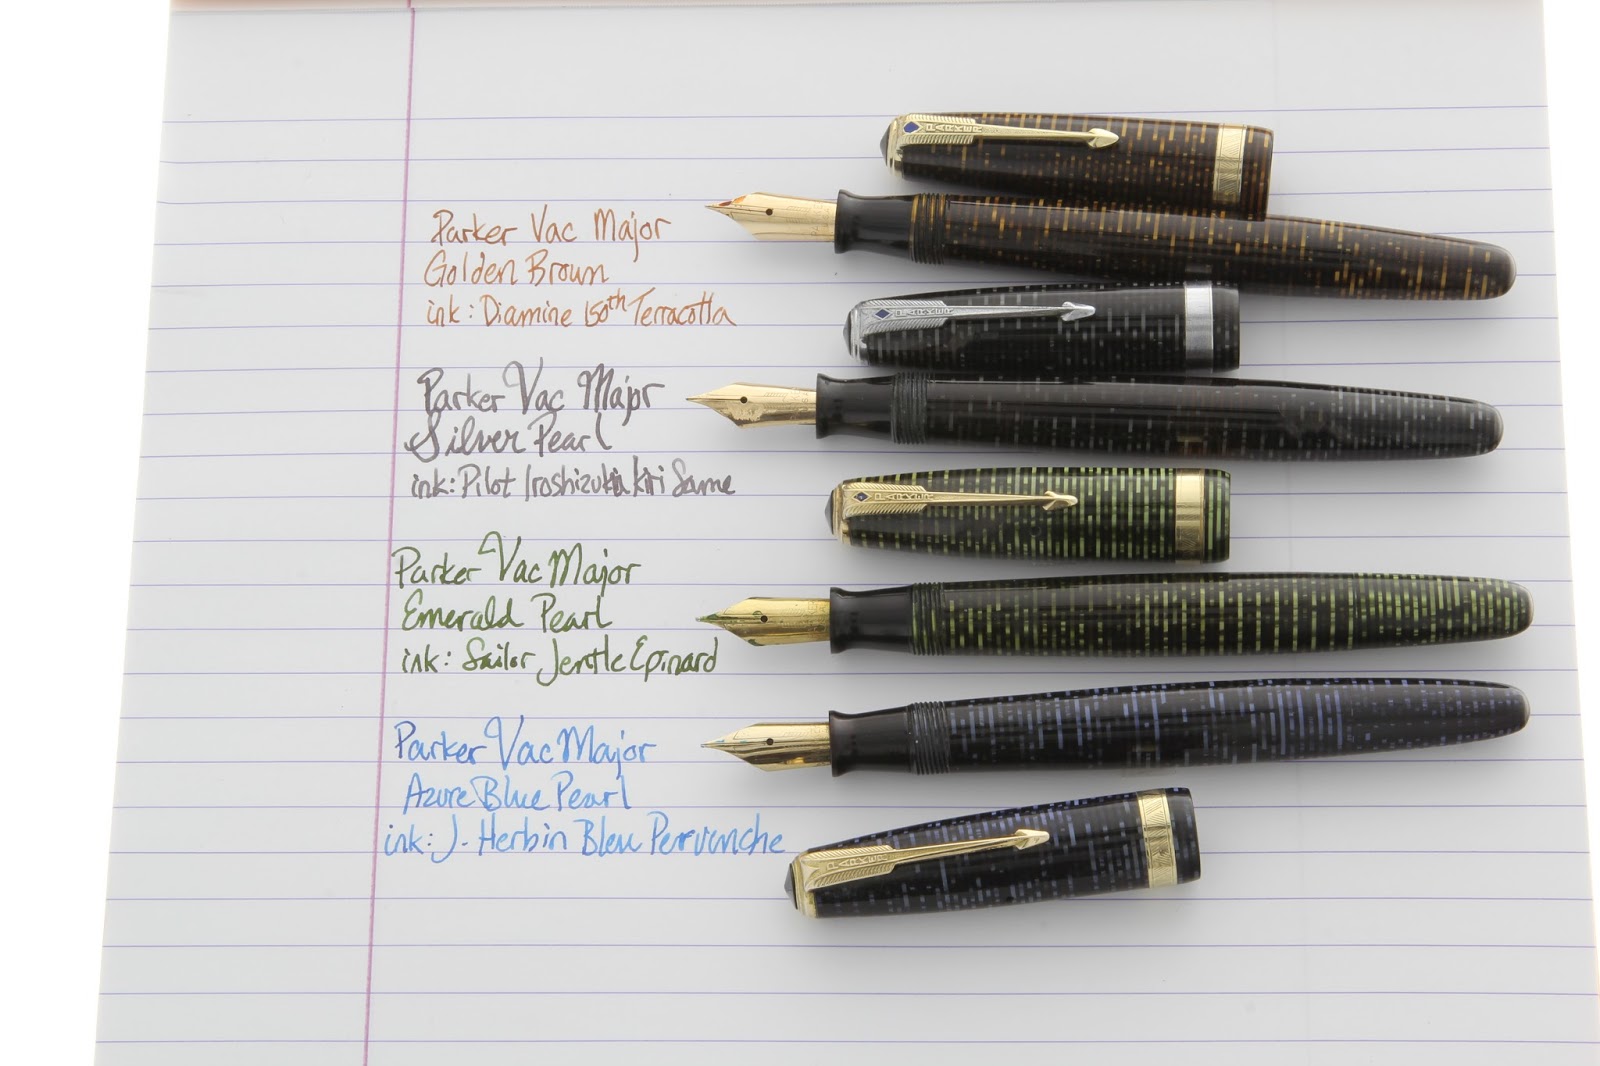 Parker Vac Major
Golden Brown
ink: Diamine 150th Terracotta
Parker Vac Major
Silver Pearl
ink: Pilot Iroshizuku Kiri Same
Parker Vac Major
Emerald Pearl
ink: Sailor Jentle Epinard
Parker Vac Major
Azure Blue Pearl
ink: J. Herbin Bleu Pervenche
PARKER
PARKER
PARKER
PARKER